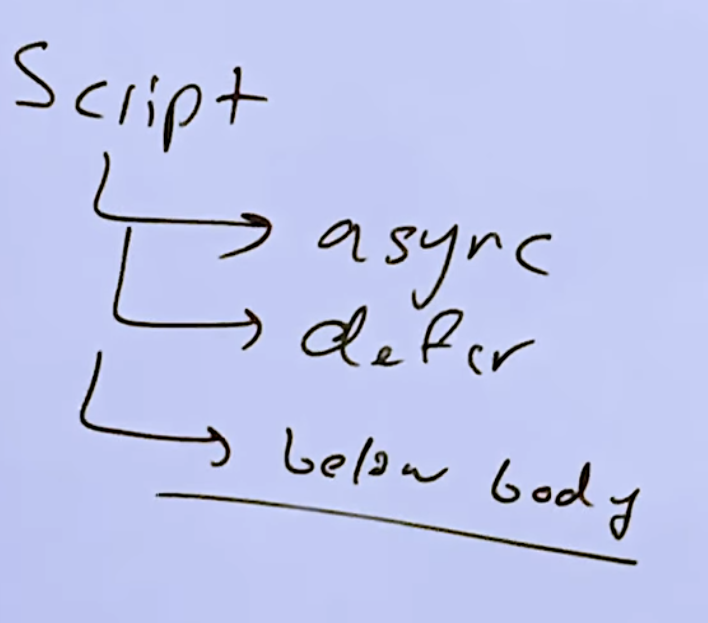 Script
async
defer
below body